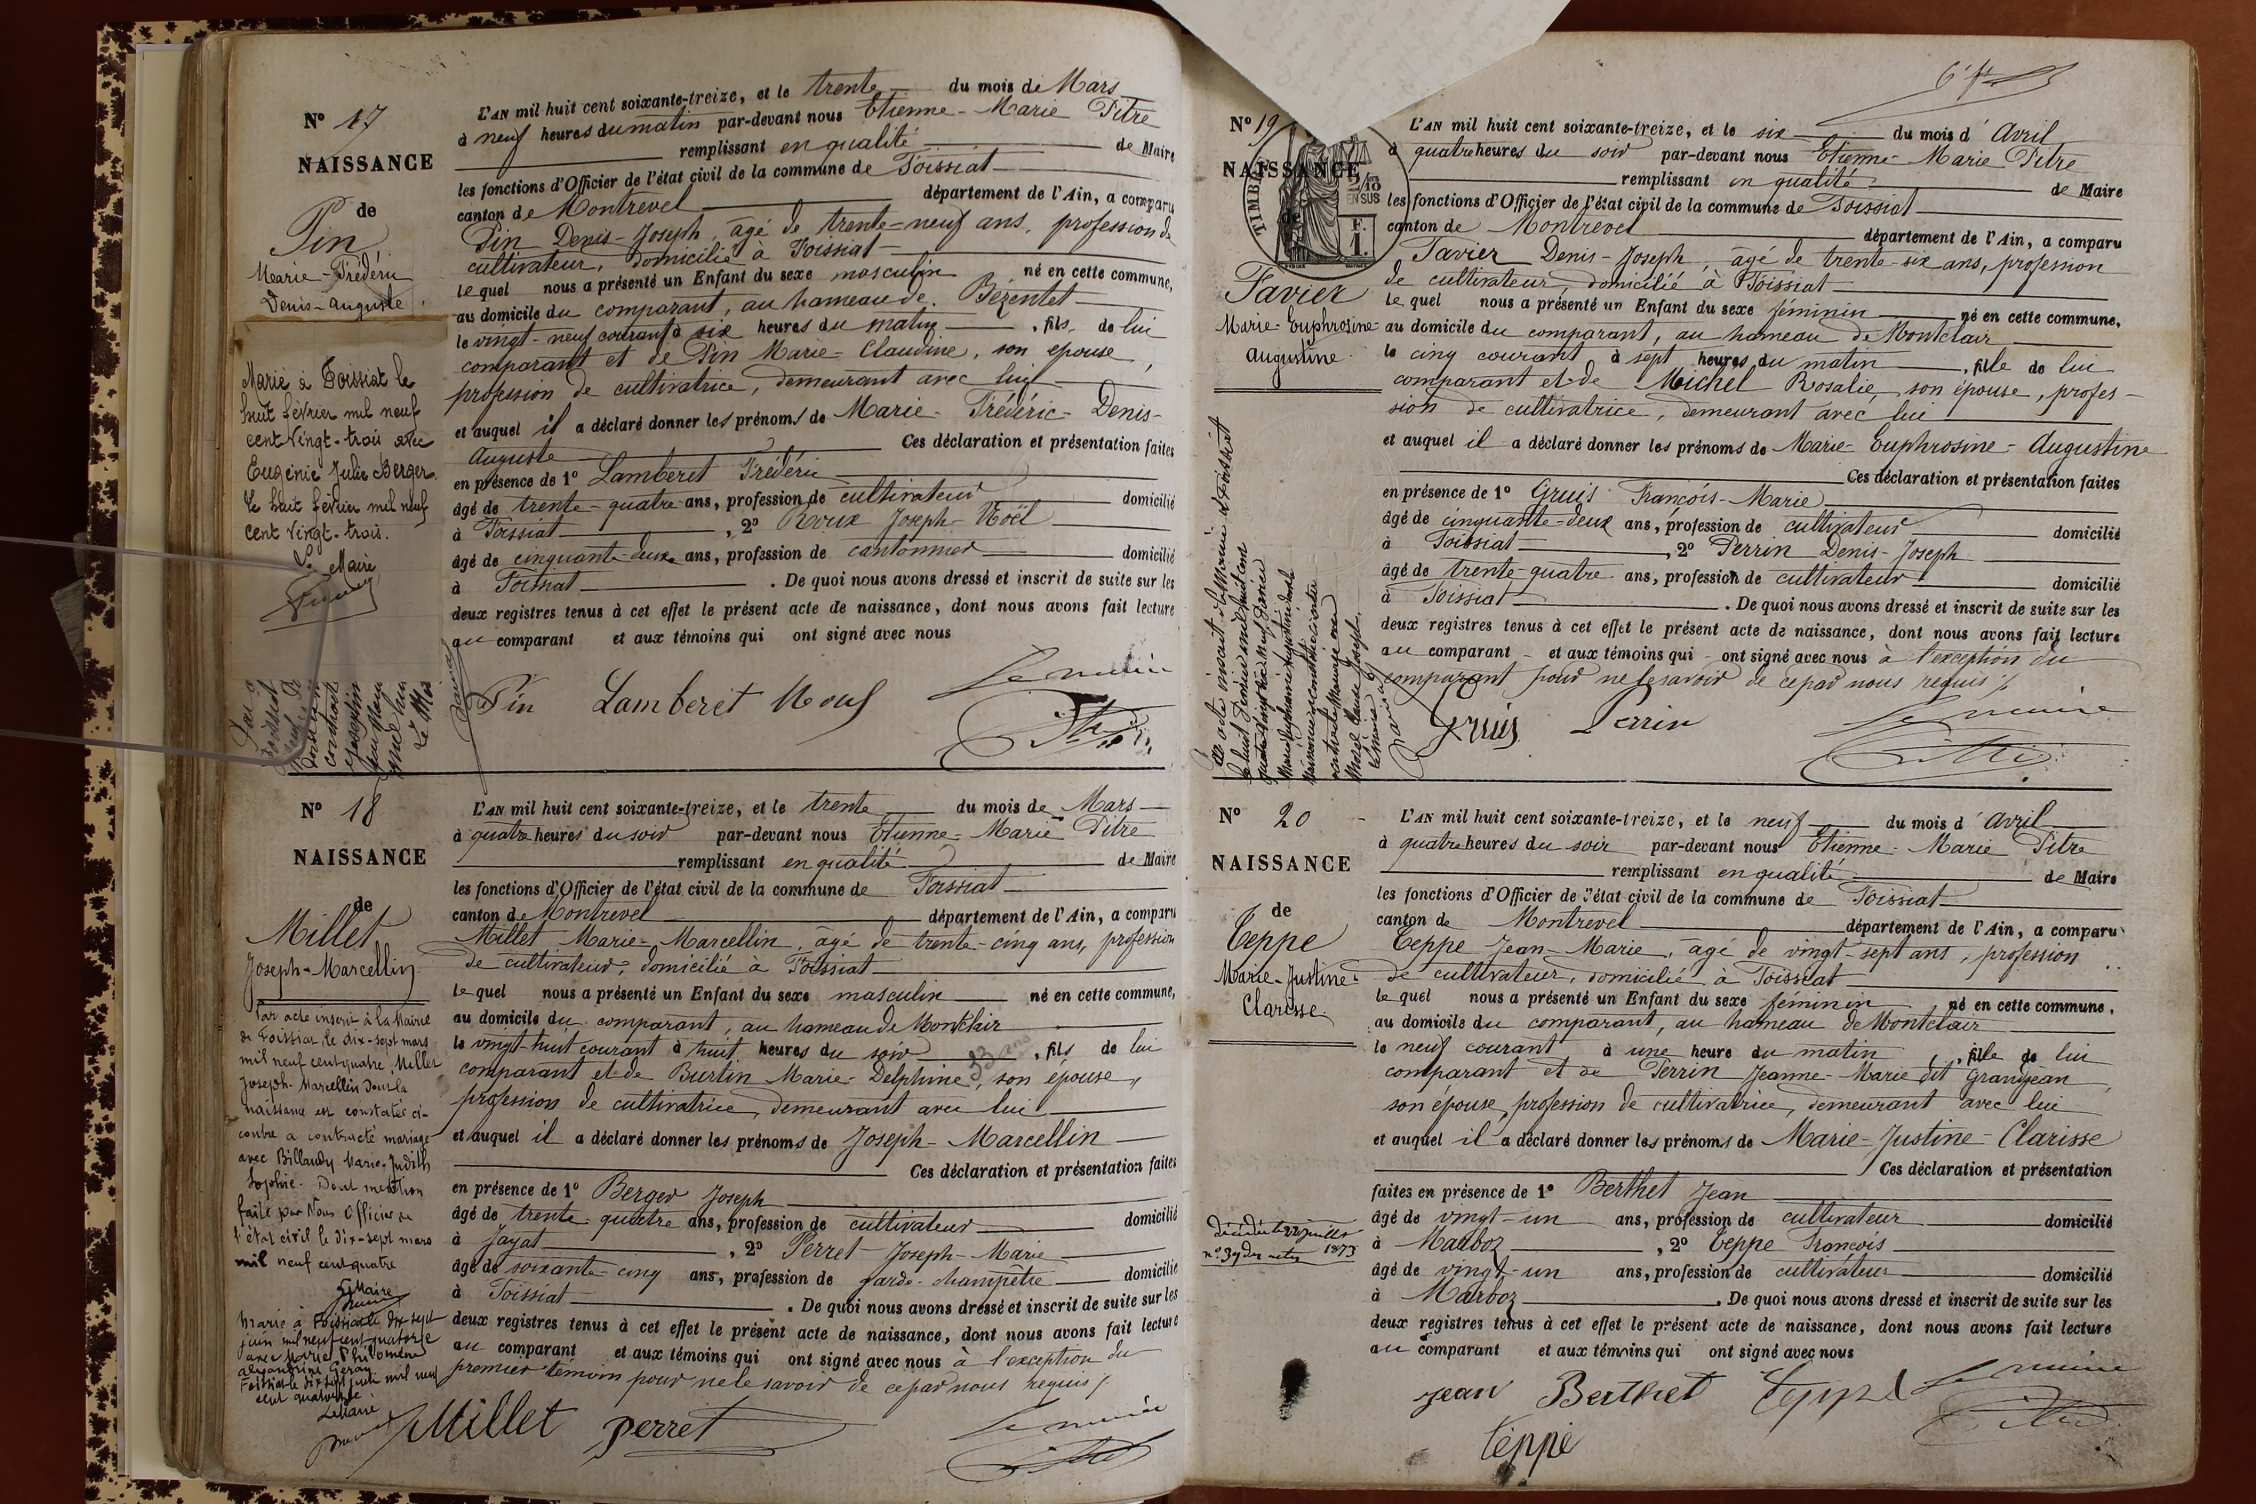 N° 17
NAISSANCE
de
Pin
Marie-Frédéric
Denis-Auguste.
Marié à Foissiat le
huit février mil neuf
cent vingt-trois avec
Eugénie Julie Berger.
Le huit février mil neuf
cent vingt-trois.
Le Maire
L'AN mil huit cent soixante-treize, et le trente du mois de Mars
à neuf heures du matin par-devant nous Etienne-Marie Pitre
remplissant en qualité de Maire
les fonctions d'Officier de l'état civil de la commune de Foissiat
canton de Montrevel département de l'Ain, a comparu
Pin Denis-Joseph, âgé de trente-neuf ans, profession de
cultivateur, domicilié à Foissiat
lequel nous a présenté un Enfant du sexe masculin né en cette commune,
au domicile du comparant, au hameau de Bézentet
le vingt-neuf courant à six heures du matin, fils de lui
comparant et de Pin Marie-Claudine, son épouse,
profession de cultivatrice, demeurant avec lui
et auquel il a déclaré donner les prénoms de Marie-Frédéric-Denis-
Auguste Ces déclaration et présentation faites
en présence de 1° Lamberet Frédéric
âgé de trente-quatre ans, profession de cultivateur domicilié
à Foissiat, 2° Roux Joseph-Noël
âgé de cinquante-deux ans, profession de cantonnier domicilié
à Foissiat. De quoi nous avons dressé et inscrit de suite sur les
deux registres tenus à cet effet le présent acte de naissance, dont nous avons fait lecture
au comparant et aux témoins qui ont signé avec nous
Pin Lamberet Roux Le maire
Pitre
N° 18
NAISSANCE
de
Millet
Joseph-Marcellin
Par acte inscrit à la Mairie
de Foissiat le dix-sept mars
mil neuf cent quatre, Millet
Joseph-Marcellin dont la
naissance est constatée ci-
contre a contracté mariage
avec Billaudy Marie-Judith
Sophie. Dont mention
faite par Nous Officier de
l'état civil le dix-sept mars
mil neuf cent quatre
Le Maire
Marié à Foissiat le dix sept
juin mil neuf cent quatorze
avec Marie Philomène
Foissiat le dix sept juin mil neuf
cent quatorze
Le Maire
L'AN mil huit cent soixante-treize, et le trente du mois de Mars
à quatre heures du soir par-devant nous Etienne-Marie Pitre
remplissant en qualité de Maire
les fonctions d'Officier de l'état civil de la commune de Foissiat
canton de Montrevel département de l'Ain, a comparu
Millet Marie-Marcellin, âgé de trente-cinq ans, profession
de cultivateur, domicilié à Foissiat
lequel nous a présenté un Enfant du sexe masculin né en cette commune,
au domicile du comparant, au hameau de Montclair
le vingt-huit courant à huit heures du soir, fils de lui
33 ans
comparant et de Burtin Marie-Delphine, son épouse,
profession de cultivatrice, demeurant avec lui
et auquel il a déclaré donner les prénoms de Joseph-Marcellin
Ces déclaration et présentation faites
en présence de 1° Berger Joseph
âgé de trente-quatre ans, profession de cultivateur domicilié
à Jayat, 2° Perret Joseph-Marie
âgé de soixante-cinq ans, profession de garde-champêtre domicilié
à Foissiat. De quoi nous avons dressé et inscrit de suite sur les
deux registres tenus à cet effet le présent acte de naissance, dont nous avons fait lecture
au comparant et aux témoins qui ont signé avec nous à l'exception du
premier témoin pour ne le savoir de ce par nous requis /.
Millet Perret Le maire
Pitre
N° 19
NAISSANCE
de
TIMBRE
2/10
EN SUS
F.
1.
Favier
Marie-Euphrosine-
Augustine.
L'AN mil huit cent soixante-treize, et le six du mois d'Avril
à quatre heures du soir par-devant nous Etienne-Marie Pitre
remplissant en qualité de Maire
les fonctions d'Officier de l'état civil de la commune de Foissiat
canton de Montrevel département de l'Ain, a comparu
Favier Denis-Joseph, âgé de trente-six ans, profession
de cultivateur, domicilié à Foissiat
lequel nous a présenté un Enfant du sexe féminin né en cette commune,
au domicile du comparant, au hameau de Montclair
le cinq courant à sept heures du matin, fille de lui
comparant et de Michel Rosalie, son épouse, profes-
sion de cultivatrice, demeurant avec lui
et auquel il a déclaré donner les prénoms de Marie-Euphrosine-Augustine
Ces déclaration et présentation faites
en présence de 1° Gruis François-Marie
âgé de cinquante-deux ans, profession de cultivateur domicilié
à Foissiat, 2° Perrin Denis-Joseph
âgé de trente-quatre ans, profession de cultivateur domicilié
à Foissiat. De quoi nous avons dressé et inscrit de suite sur les
deux registres tenus à cet effet le présent acte de naissance, dont nous avons fait lecture
au comparant et aux témoins qui ont signé avec nous à l'exception du
comparant pour ne le savoir de ce par nous requis /.
Gruis Perrin Le maire
Pitre
N° 20
NAISSANCE
de
Teppe
Marie-Justine-
Clarisse.
Décédée le 22 juillet
n° 39 des actes 1873
L'AN mil huit cent soixante-treize, et le neuf du mois d'Avril
à quatre heures du soir par-devant nous Etienne-Marie Pitre
remplissant en qualité de Maire
les fonctions d'Officier de l'état civil de la commune de Foissiat
canton de Montrevel département de l'Ain, a comparu
Teppe Jean-Marie, âgé de vingt-sept ans, profession
de cultivateur, domicilié à Foissiat
lequel nous a présenté un Enfant du sexe féminin né en cette commune,
au domicile du comparant, au hameau de Montclair
le neuf courant à une heure du matin, fille de lui
comparant et de Perrin Jeanne-Marie dit Grandjean,
son épouse, profession de cultivatrice, demeurant avec lui
et auquel il a déclaré donner les prénoms de Marie-Justine-Clarisse
Ces déclaration et présentation
faites en présence de 1° Berthet Jean
âgé de vingt-un ans, profession de cultivateur domicilié
à Marboz, 2° Teppe François
âgé de vingt-un ans, profession de cultivateur domicilié
à Marboz. De quoi nous avons dressé et inscrit de suite sur les
deux registres tenus à cet effet le présent acte de naissance, dont nous avons fait lecture
au comparant et aux témoins qui ont signé avec nous
Jean Berthet Teppe Le maire
Teppe Pitre